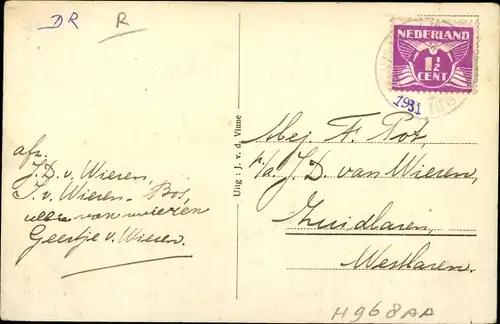 DR
R
NEDERLAND
1½
CENT
1931
afz.
J. D. v. Wieren,
J. v. Wieren - Bos,
van wieren
Geertje v. Wieren.
Uitg : J. v. d. Vinne
Mej. F. Pot,
p/a J. D. van Wieren,
Zuidlaren,
Westlaren.
H968AA